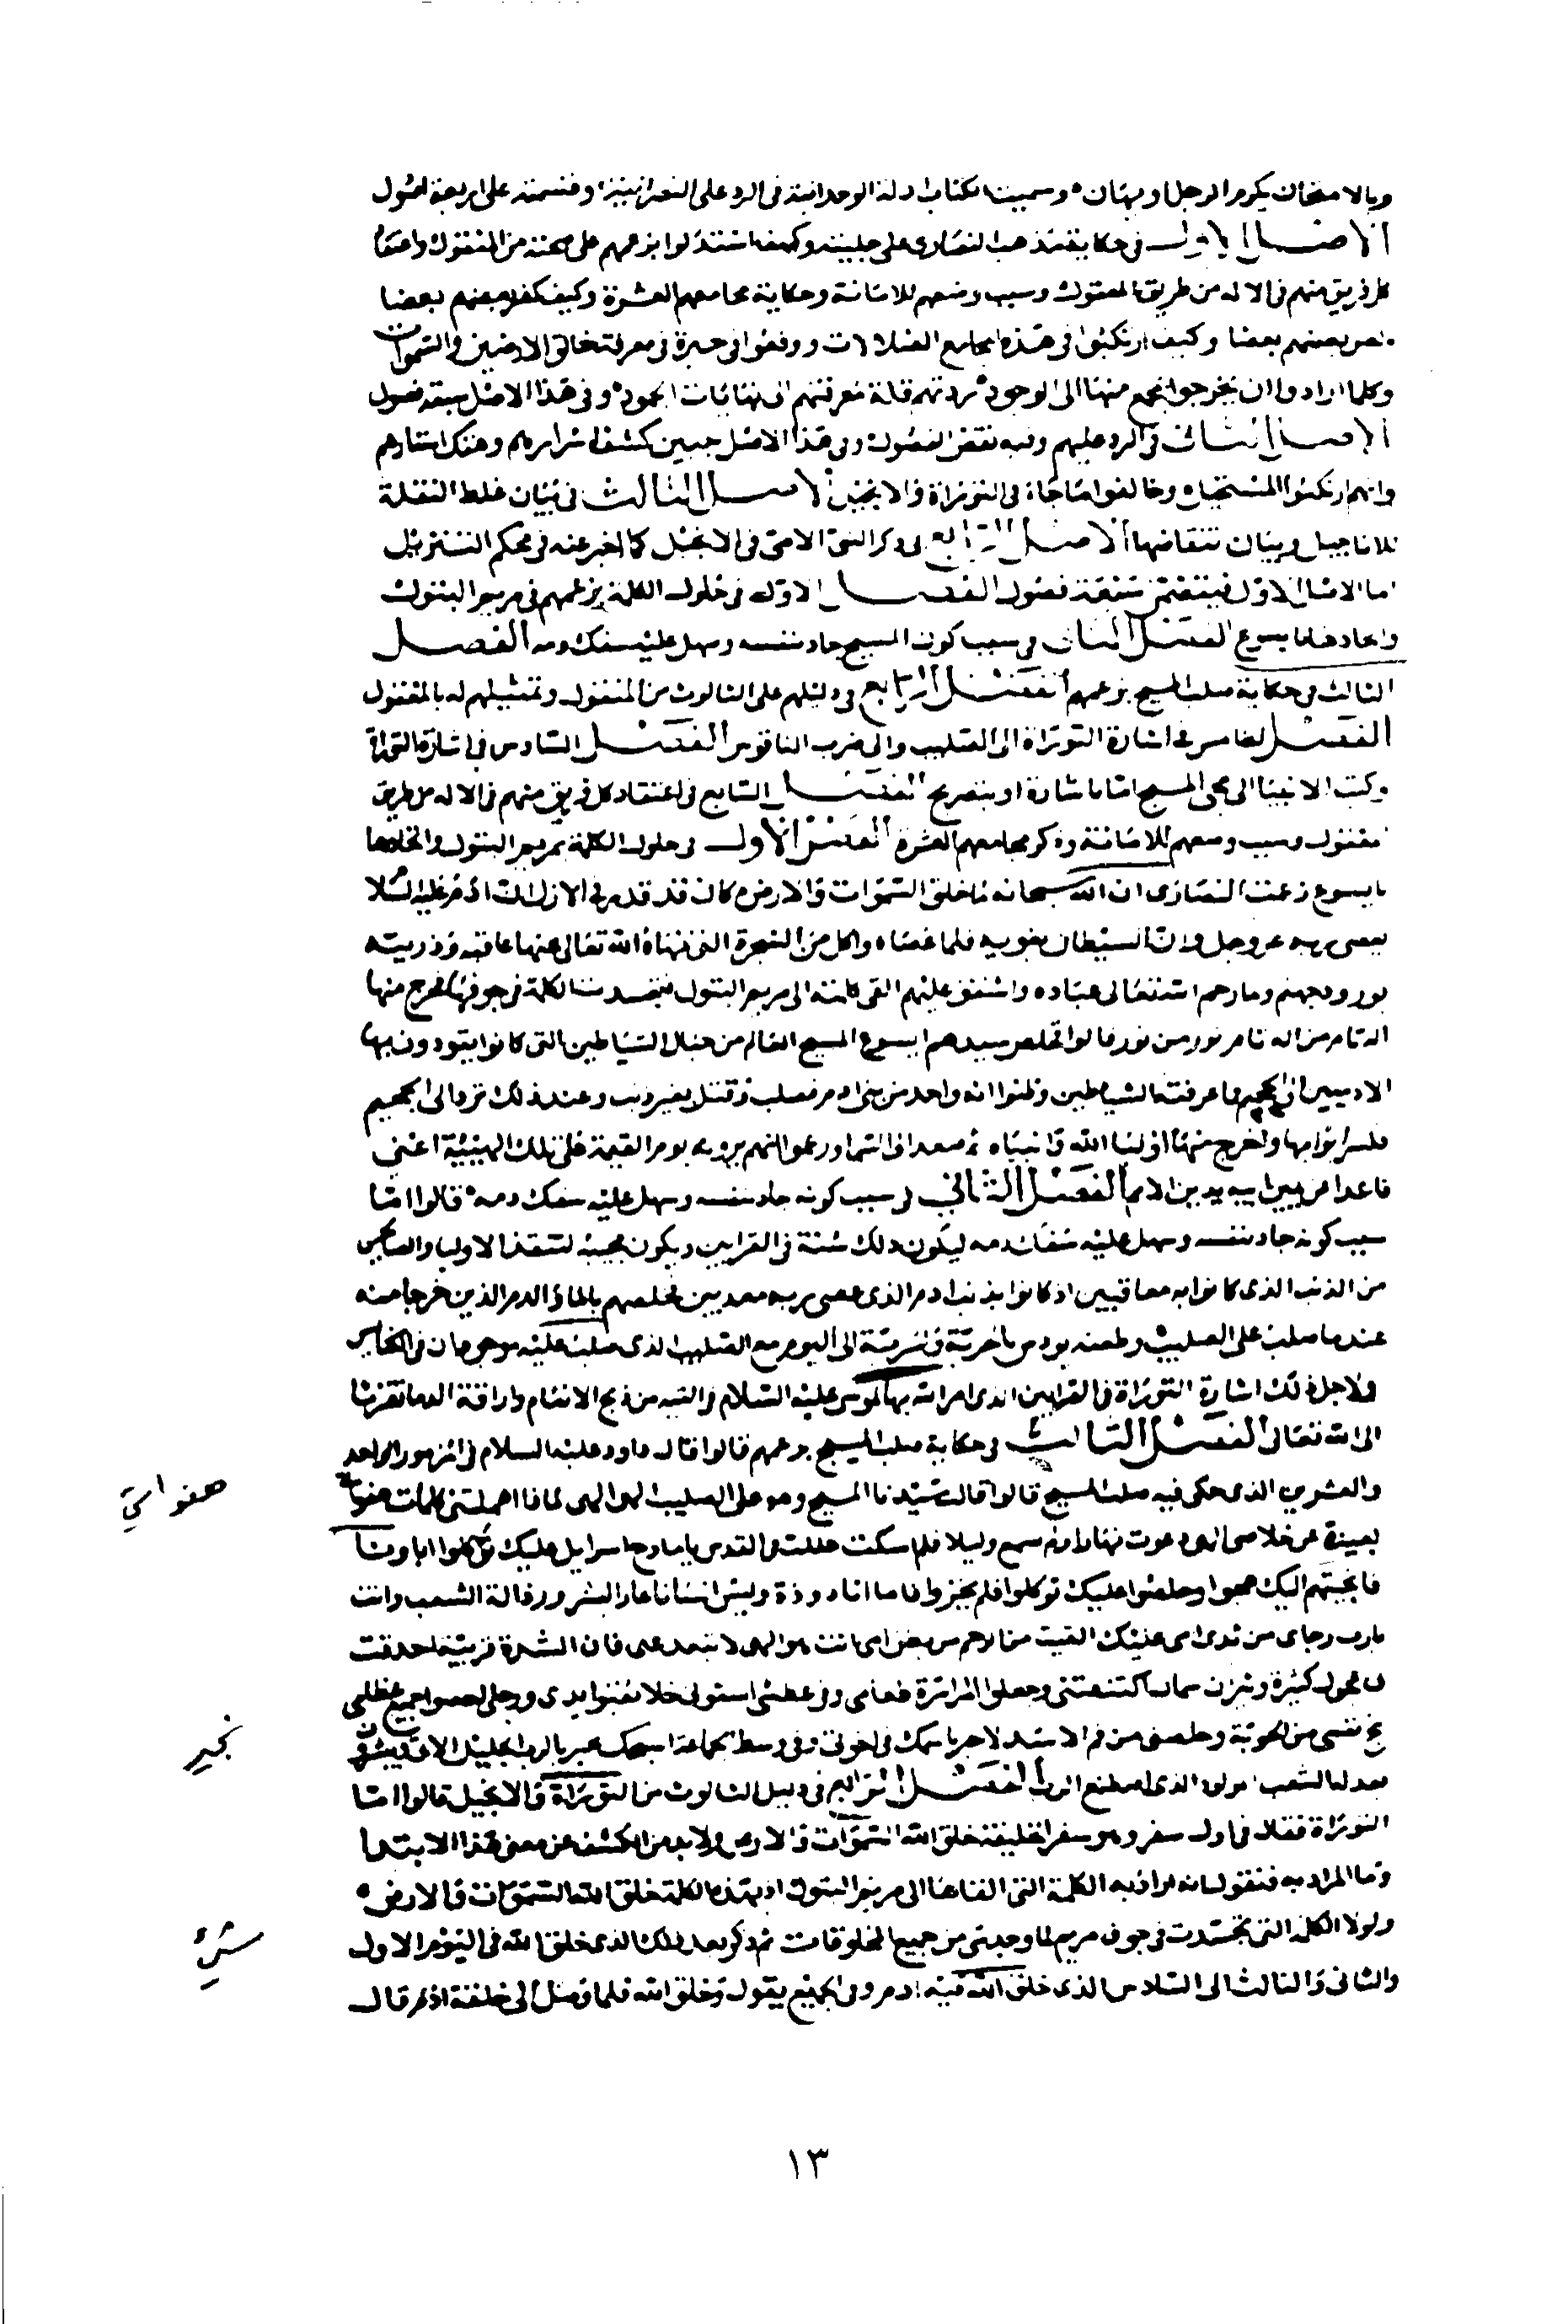 وبالامتحان يكرم الرجل او يهان وسميته كتاب ادلة الوحدانية في الرد على النصرانية وقسمته على اربعة اصول
الاصل الاول في حكاية مذهب النصارى على جليته وكيف استدلوا بزعمهم على صحته من المنقول واعتقاد
كل فريق منهم في الاله من طريق المعقول وسبب وضعهم للامانة وحكاية مجامعهم العشرة وكيف كفر بعضهم بعضا
بعضهم بعضا وكيف ارتكبوا في هذه المجامع الضلالات ووقعوا في حيرة في معرفة خالق الارضين والسموات
وكلما ارادوا ان يخرجوا بحجج منها الى الوجود ردتهم قلة معرفتهم الى نهايات الجمود وفي هذا الاصل سبعة فصول
الاصل الثاني في الرد عليهم وفيه نقض الفصول وفي هذا الاصل حين كشف اسرارهم وهتك استارهم
وانهم ارتكبوا المستحيلات وخالفوا ما جاء في التوراة والانجيل الاصل الثالث في بيان غلط النقلة
للاناجيل وبيان تناقضها الاصل الرابع في ذكر النبي الامي في الانجيل كما اخبر عنه في محكم التنزيل
اما الاصل الاول فيتضمن سبعة فصول الفصل الاول في حلول الكلمة بزعمهم في مريم البتول
واتحادها بيسوع الفصل الثاني في سبب كون المسيح جاد بنفسه وسهل عليه سفك دمه الفصل
الثالث في حكاية صلب المسيح بزعمهم الفصل الرابع في دليلهم على الثالوث من المنقول وتمثيلهم له بالمعقول
الفصل الخامس في اشارة التوراة الى الصليب والى ضرب الناقوس الفصل السادس في اشارة التوراة
وكتب الانبيا الى مجي المسيح اما باشارة او بتصريح الفصل السابع في اعتقاد كل فريق منهم في الاله من طريق
المعقول وسبب وضعهم للامانة وذكر مجامعهم العشرة الفصل الاول في حلول الكلمة بمريم البتول واتحادها
بايسوع زعمت النصارى ان الله سبحانه لما خلق السموات والارض كان قد قدر في الازل ان ادم عليه السلام
يعصي ربه عز وجل وان الشيطان يغويه فلما عصاه واكل من الشجرة التي نهاه الله تعالى عنها عاقبه وذريته
بورود جهنم ولما رحم الله تعالى عباده واشفق عليهم القى كلمته الى مريم البتول فتجسدت الكلمة في جوفها فخرج منها
اله تام من اله تام نور من نور قالوا فخلص سيدهم ايسوع المسيح العالم من حبال الشياطين التي كانوا يقودون بها
الادميين الى الجحيم فما عرفته الشياطين وظنوا انه واحد من بني ادم فصلب وقتل بغير ذنب وعند ذلك نزل الى الجحيم
فكسر ابوابها واخرج منها اوليا الله وانبياه ثم صعد الى السما وزعموا انهم يرونه يوم القيمة على تلك الهيئة اعني
قاعدا عن يمين ابيه يدين الامم الفصل الثاني في سبب كونه جاد بنفسه وسهل عليه سفك دمه قالوا اما
سبب كونه جاد بنفسه وسهل عليه سفك دمه ليكون ذلك سنة في القرابين ويكون مجيئه لينقذ الاوليا والصالحين
من الذنب الذي كانوا به معاقبين اذ كانوا بذنب ادم الذي عصى ربه معذبين فخلصهم بالما والدم الذين خرجا منه
عندما صلب على الصليب وطعنه يودس بالحربة
ولاجل ذلك اشارة التوراة في القرابين الذي امر الله بها لموسى عليه السلام في التيه من ذبح الانعام واراقة الدما تقربا
الى الله تعالى الفصل الثالث في حكاية صلب المسيح بزعمهم قالوا قال داود عليه السلام في المزمور الواحد
والعشرين الذي حكى فيه صلب المسيح قالوا قال سيدنا المسيح وهو على الصليب الهي الهي لماذا اهملتني كلمات هفواتي
بعيدة عن خلاصي الهي دعوت نهارا فلم تسمع وليلا فلم اسكت حللت في القدس يا مادح اسراييل عليك توكلوا اباونا
فانجيتهم اليك صحوا وخلصوا عليك توكلوا فلم يخزوا فاما انا دودة وليس انسانا عار البشر ورذالة الشعب وانت
يارب رجاي من ثدي امي عليك القيت من الرحم من بطن امي انت هو الهي لا تبعد عني فان الشدة قريبة احدقت
بي عجول كثيرة وثيران سمان اكتنفتني وجعلوا المرارة طعامي وفي عطشي اسقوني خلا ثقبوا يدي ورجلي احصوا جميع عظامي
نج نفسي من الحربة وخلصني من فم الاسد لاخبر باسمك في اخوتي وفي وسط الجماعة اسبحك
الفصل الرابع في دليل الثالوث من التوراة والانجيل قالوا اما
التوراة فقال في اول سفر وهو سفر الخليقة خلق الله السموات والارض ولابد من الكشف عن معنى هذا الابتدا
وما المراد به فنقول انه اراد به الكلمة التي القاها الى مريم البتول اذ بهذه الكلمة خلق الله السموات والارض
ولولا الكلمة التي تجسدت في جوف مريم لما وجد شي من جميع المخلوقات ثم ذكر بعد ذلك الذي خلق الله في اليوم الاول
والثاني والثالث الى السادس الذي خلق الله فيه ادم وفي الجميع يقول وخلق الله فلما وصل الى خلقة ادم قال
هفواتي
نجير
شيء
١٣